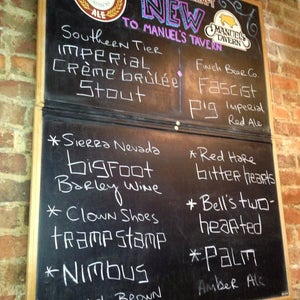 ALE
NEW
TO MANUEL'S TAVERN
MANUEL'S
TAVERN
Southern Tier
Imperial
Crème Brûlée
Stout
Finch Beer Co.
Fascist
Pig Imperial
Red Ale
* Sierra Nevada
Bigfoot
Barley Wine
* Clown Shoes
Tramp Stamp
* Nimbus
Brown
* Red Hare
Bitter Hearts
* Bell's Two-
Hearted
* Palm
Amber Ale